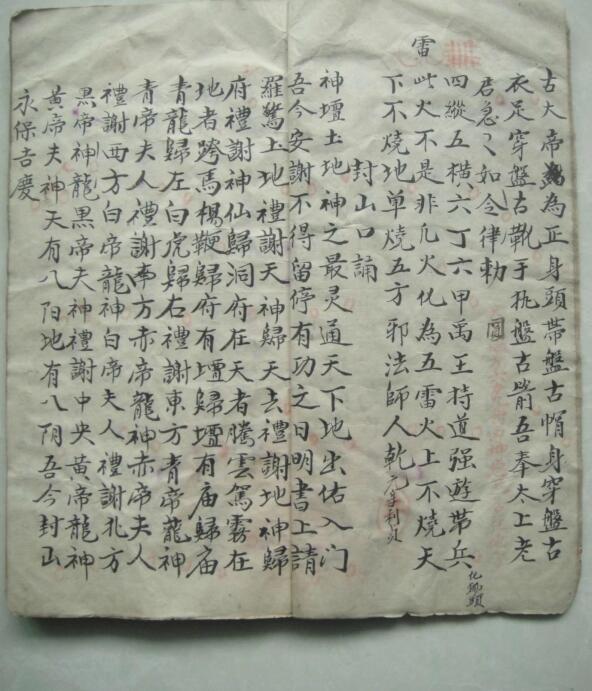 古大帝為正身頭帶盤古帽身穿盤古
衣足穿盤古靴手执盤古箭吾奉太上老
君急々如令律勅
圓
四縱五横六丁六甲禹王持道强遊帶兵
化孤頭
雷
此火不是非凡火化為五雷火上不燒天
下不燒地单燒五方邪法師人乾元亨利貞
封山口誦
神壇土地神之最灵通天下地出佑入门
吾今安謝不得留停有功之日明書上請
羅驚土地禮謝天神歸天去禮謝地神歸
府禮謝神仙歸洞府在天者騰雲駕霧在
地者跨馬楊鞭歸府有壇歸壇有庙歸庙
青龍歸左白虎歸右禮謝東方青帝龍神
青帝夫人禮謝奉方赤帝龍神赤帝夫人
禮謝西方白帝龍神白帝夫人禮謝北方
黒帝神龍黒帝夫神禮謝中央黄帝龍神
黄帝夫神天有八阳地有八阴吾今封山
永保吉慶